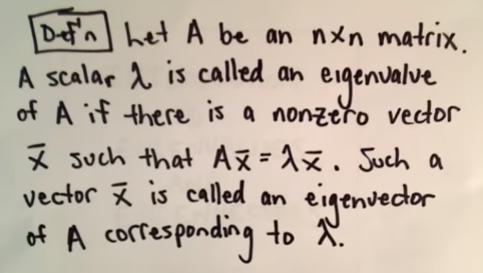 Def'n Let A be an n×n matrix.
A scalar λ is called an eigenvalue
of A if there is a nonzero vector
x̄ such that Ax̄ = λx̄. Such a
vector x̄ is called an eigenvector
of A corresponding to λ.